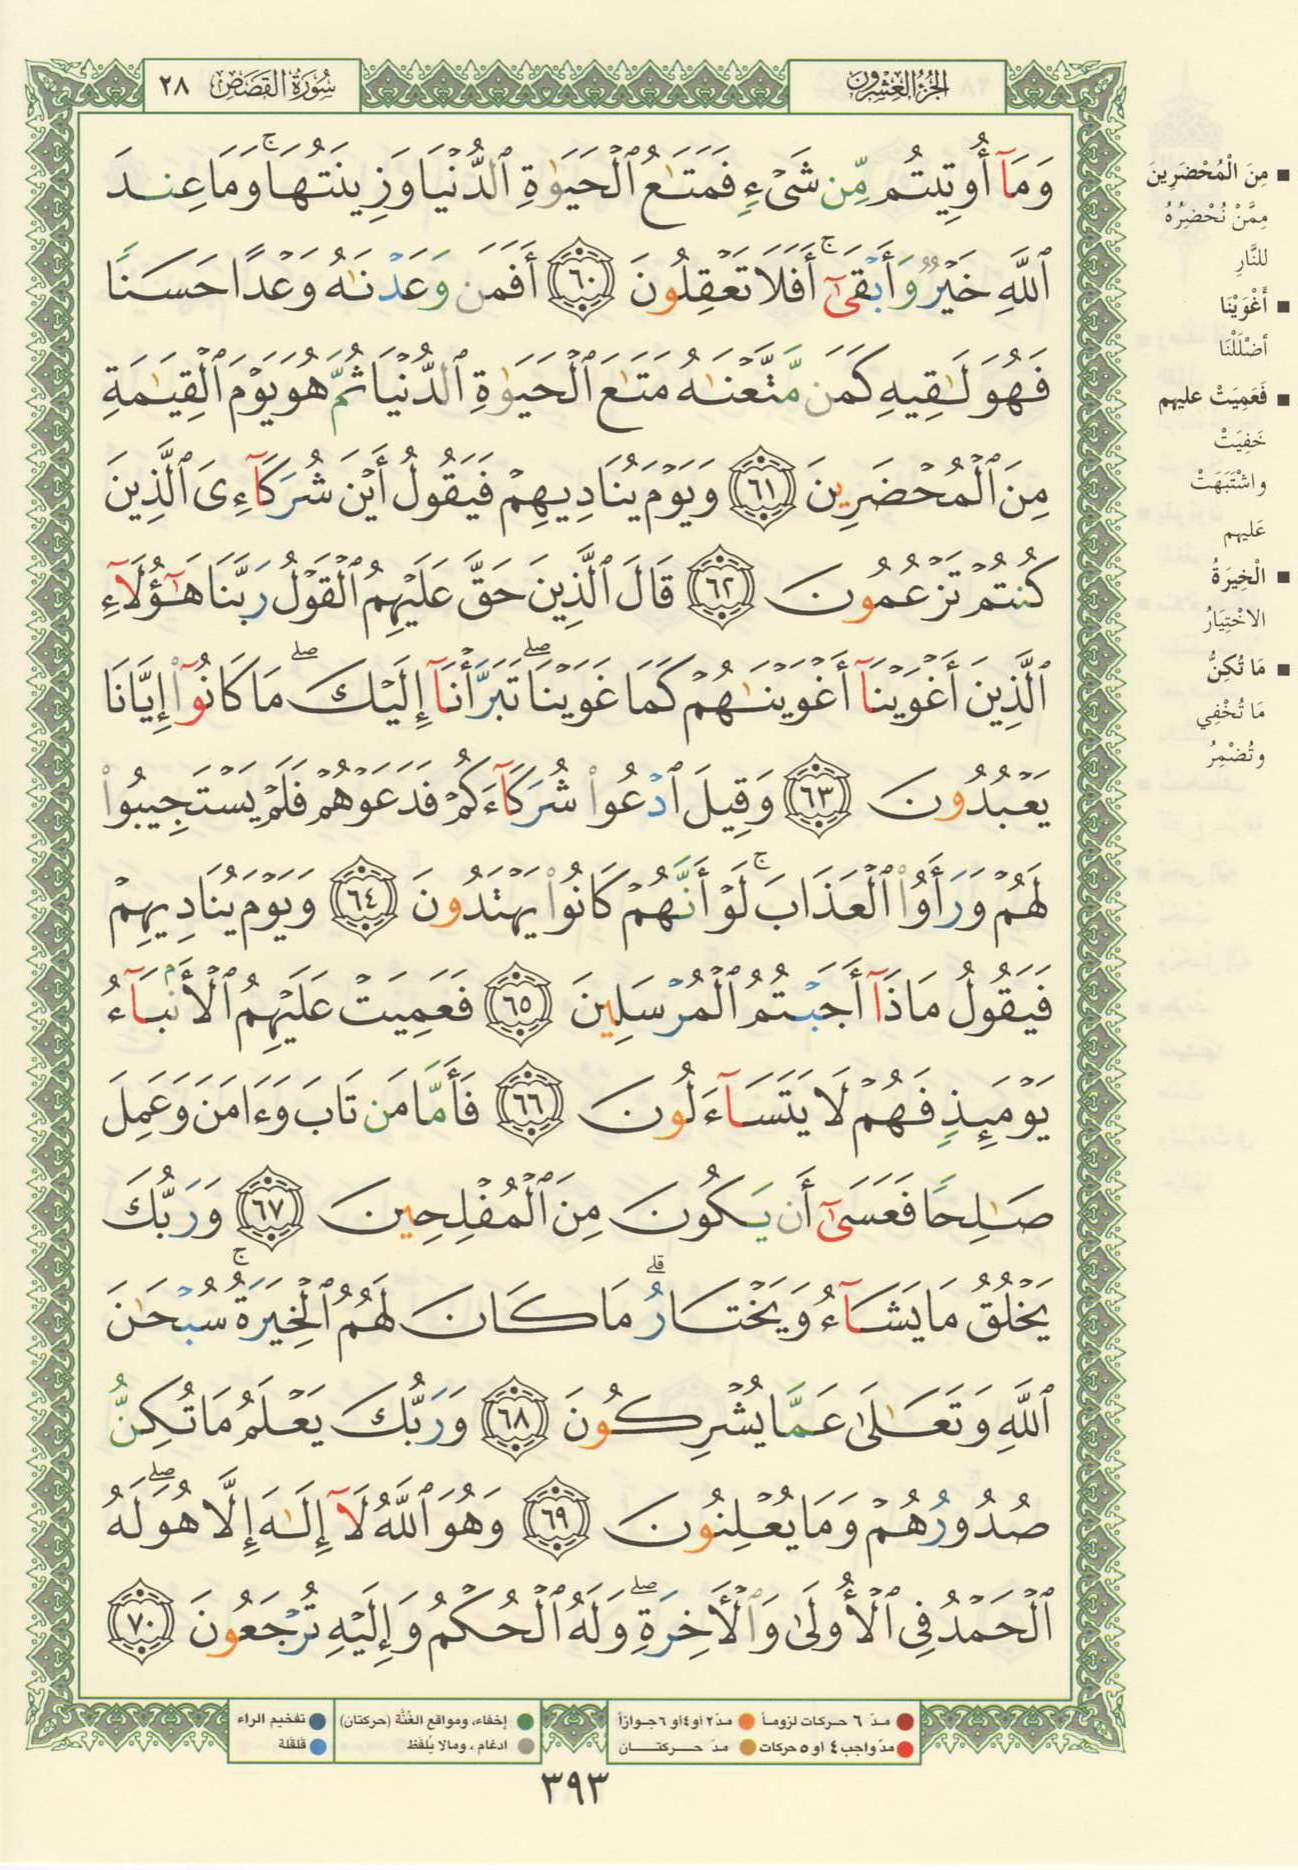 الجزء العشرون
سورة القصص ٢٨
وَمَآ أُوتِيتُم مِّن شَىْءٍ فَمَتَـٰعُ ٱلْحَيَوٰةِ ٱلدُّنْيَا وَزِينَتُهَا ۚ وَمَا عِندَ
ٱللَّهِ خَيْرٌ وَأَبْقَىٰٓ ۚ أَفَلَا تَعْقِلُونَ ٦٠ أَفَمَن وَعَدْنَـٰهُ وَعْدًا حَسَنًا
فَهُوَ لَـٰقِيهِ كَمَن مَّتَّعْنَـٰهُ مَتَـٰعَ ٱلْحَيَوٰةِ ٱلدُّنْيَا ثُمَّ هُوَ يَوْمَ ٱلْقِيَـٰمَةِ
مِنَ ٱلْمُحْضَرِينَ ٦١ وَيَوْمَ يُنَادِيهِمْ فَيَقُولُ أَيْنَ شُرَكَآءِىَ ٱلَّذِينَ
كُنتُمْ تَزْعُمُونَ ٦٢ قَالَ ٱلَّذِينَ حَقَّ عَلَيْهِمُ ٱلْقَوْلُ رَبَّنَا هَـٰٓؤُلَآءِ
ٱلَّذِينَ أَغْوَيْنَآ أَغْوَيْنَـٰهُمْ كَمَا غَوَيْنَا ۖ تَبَرَّأْنَآ إِلَيْكَ ۖ مَا كَانُوٓا۟ إِيَّانَا
يَعْبُدُونَ ٦٣ وَقِيلَ ٱدْعُوا۟ شُرَكَآءَكُمْ فَدَعَوْهُمْ فَلَمْ يَسْتَجِيبُوا۟
لَهُمْ وَرَأَوُا۟ ٱلْعَذَابَ ۚ لَوْ أَنَّهُمْ كَانُوا۟ يَهْتَدُونَ ٦٤ وَيَوْمَ يُنَادِيهِمْ
فَيَقُولُ مَاذَآ أَجَبْتُمُ ٱلْمُرْسَلِينَ ٦٥ فَعَمِيَتْ عَلَيْهِمُ ٱلْأَنۢبَآءُ
يَوْمَئِذٍ فَهُمْ لَا يَتَسَآءَلُونَ ٦٦ فَأَمَّا مَن تَابَ وَءَامَنَ وَعَمِلَ
صَـٰلِحًا فَعَسَىٰٓ أَن يَكُونَ مِنَ ٱلْمُفْلِحِينَ ٦٧ وَرَبُّكَ
يَخْلُقُ مَا يَشَآءُ وَيَخْتَارُ ۗ مَا كَانَ لَهُمُ ٱلْخِيَرَةُ ۚ سُبْحَـٰنَ
ٱللَّهِ وَتَعَـٰلَىٰ عَمَّا يُشْرِكُونَ ٦٨ وَرَبُّكَ يَعْلَمُ مَا تُكِنُّ
صُدُورُهُمْ وَمَا يُعْلِنُونَ ٦٩ وَهُوَ ٱللَّهُ لَآ إِلَـٰهَ إِلَّا هُوَ ۖ لَهُ
ٱلْحَمْدُ فِى ٱلْأُولَىٰ وَٱلْـَٔاخِرَةِ ۖ وَلَهُ ٱلْحُكْمُ وَإِلَيْهِ تُرْجَعُونَ ٧٠
■ مِنَ الْمُحْضَرِينَ
مِمَّنْ نُحْضِرُهُ
للنَّارِ
■ أَغْوَيْنَا
أضْلَلْنَا
■ فَعَمِيَتْ عليهم
خَفِيَتْ
واشْتَبَهَتْ
عَليهم
■ الْخِيَرَةُ
الاخْتِيَارُ
■ مَا تُكِنُّ
مَا تُخْفِي
وتُضْمِرُ
مدّ ٦ حركات لزوماً مدّ٢ أو٤أو ٦جوازاً
مدّ واجب٤ أو ٥ حركات مدّ حركتان
إخفاء، ومواقع الغُنَّة (حركتان) تفخيم الراء
ادغام ، ومالا يُلفَظ قلقلة
٣٩٣